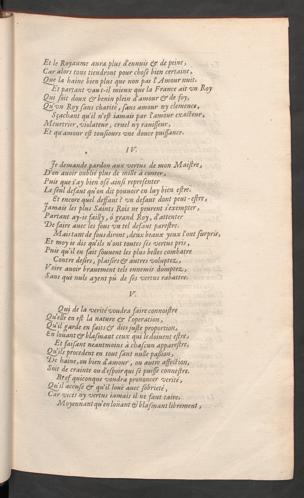 Et le Royaume aura plus d'ennuis & de peint,
Car alors tous tiendront pour chose bien certaine,
Que la haine bien plus que non pas l'Amour nuit.
Et partant vaut-il mieux que la France ait vn Roy
Qui soit doux & benin plein d'amour & de foy,
Qu'vn Roy sans charité, sans amour ny clemence,
Sçachant qu'il n'est iamais par l'amour exacteur,
Meurtrier, violateur, cruel ny ranssoeur,
Et qu'amour est tousiours vne douce puissance.
IV.
Ie demande pardon aux vertus de mon Maistre,
D'en auoir oublié plus de mille à conter,
Puis que i'ay bien osé ainsi representer
La seul defaut qu'on dit pouuoir en luy bien estre.
Et encore quel deffaut? vn defaut dont peut-estre,
Iamais les plus Saints Rois ne peurent s'exempter,
Partant ay-ie failly, ô grand Roy, d'attenter
De faire auec les fous vn tel defaut parestre.
Mais tant de fous diront, deux beaux yeux l'ont surpris,
Et moy ie dis qu'ils n'ont toutes ses vertus pris,
Puis qu'il en fait souuent les plus belles combatre
Contre desirs, plaisirs & autres voluptez,
Voire auoir brauement tels ennemis domptez,
Sans que nuls ayent pû de ses vertus rabattre.
V.
Qui de la verité voudra faire connoistre
Qu'elle en est la nature & l'operation,
Qu'il garde en faits & dits iuste proportion,
En loüant & blasmant ceux qui le doiuent estre,
Et faisant neantmoins à chascun apparestre,
Qu'ils procedent en tout sans nulle passion,
De haine, ou bien d'amour, ou autre affection,
Soit de crainte ou d'espoir qui se puisse connestre.
Bref quiconque voudra prononcer verité,
Qu'il accuse & qu'il louë auec sobrieté,
Car vices ny vertus iamais il ne faut taire.
Moyennant qu'en loüant & blasmant librement,